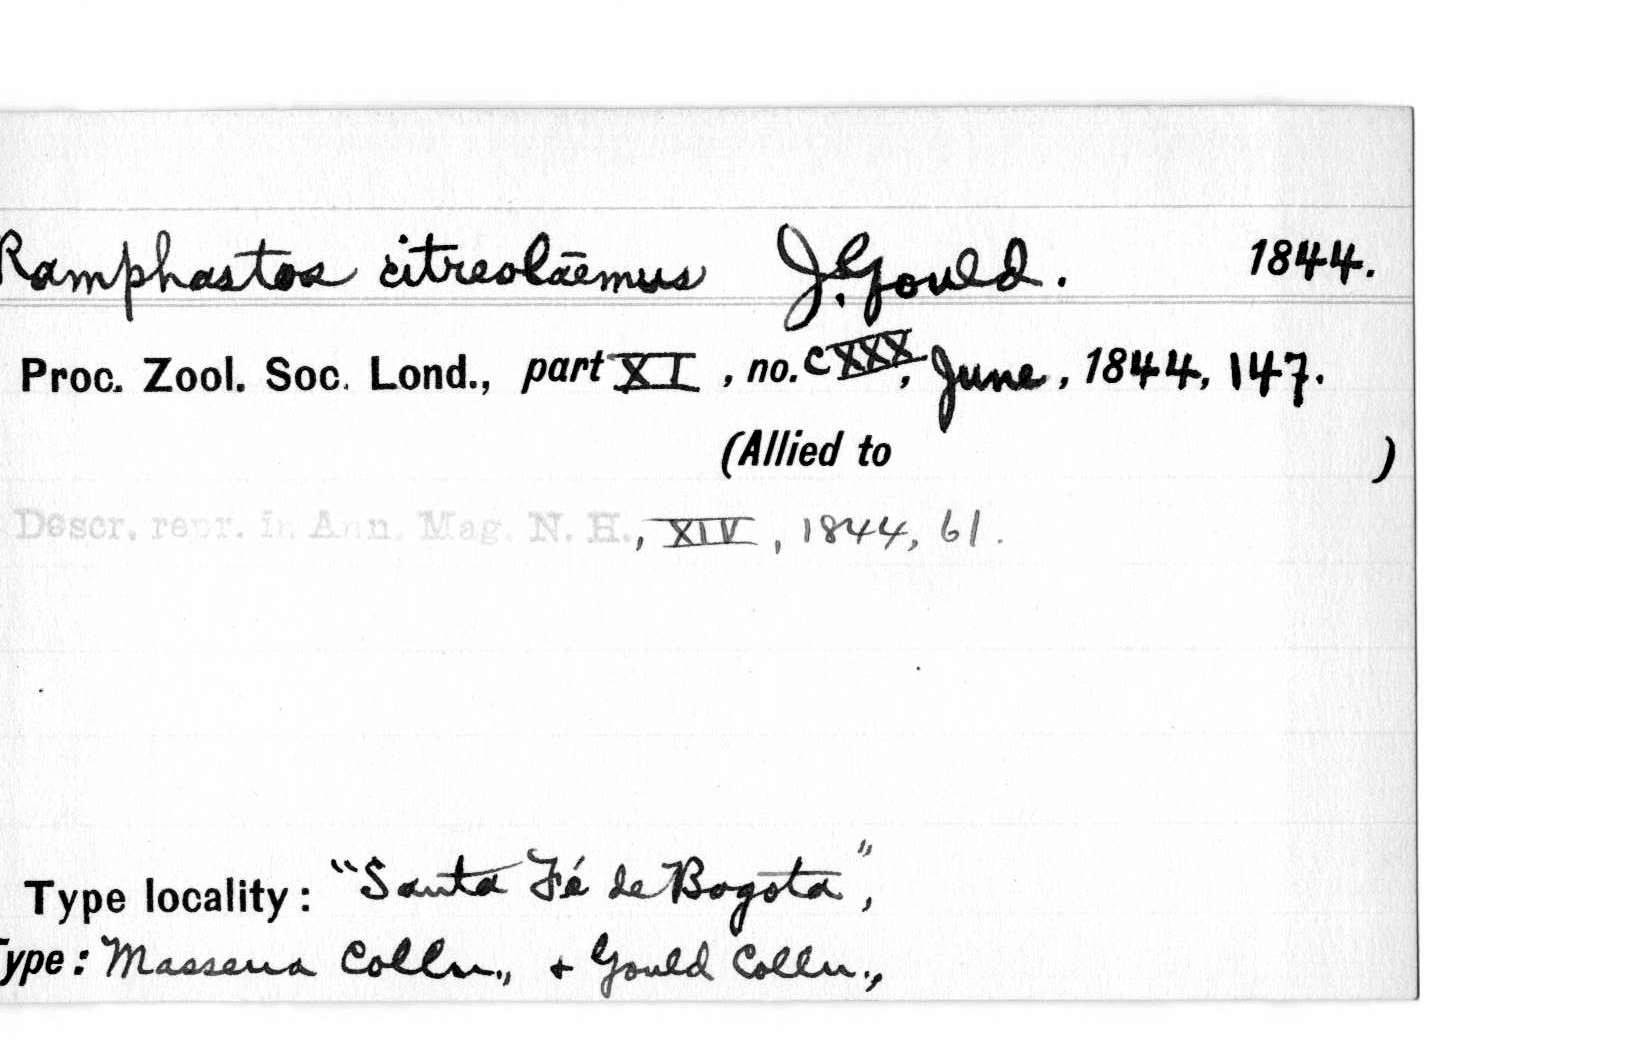 Ramphastos citreolāemus J. Gould. 1844.
Proc. Zool. Soc. Lond., part XI, no. CXXX, June, 1844, 147.
(Allied to )
Descr. repr. in Ann. Mag. N. H., XIV, 1844, 61.
Type locality: "Santa Fé de Bogota",
Type: Massena Colln., & Gould Colln.,